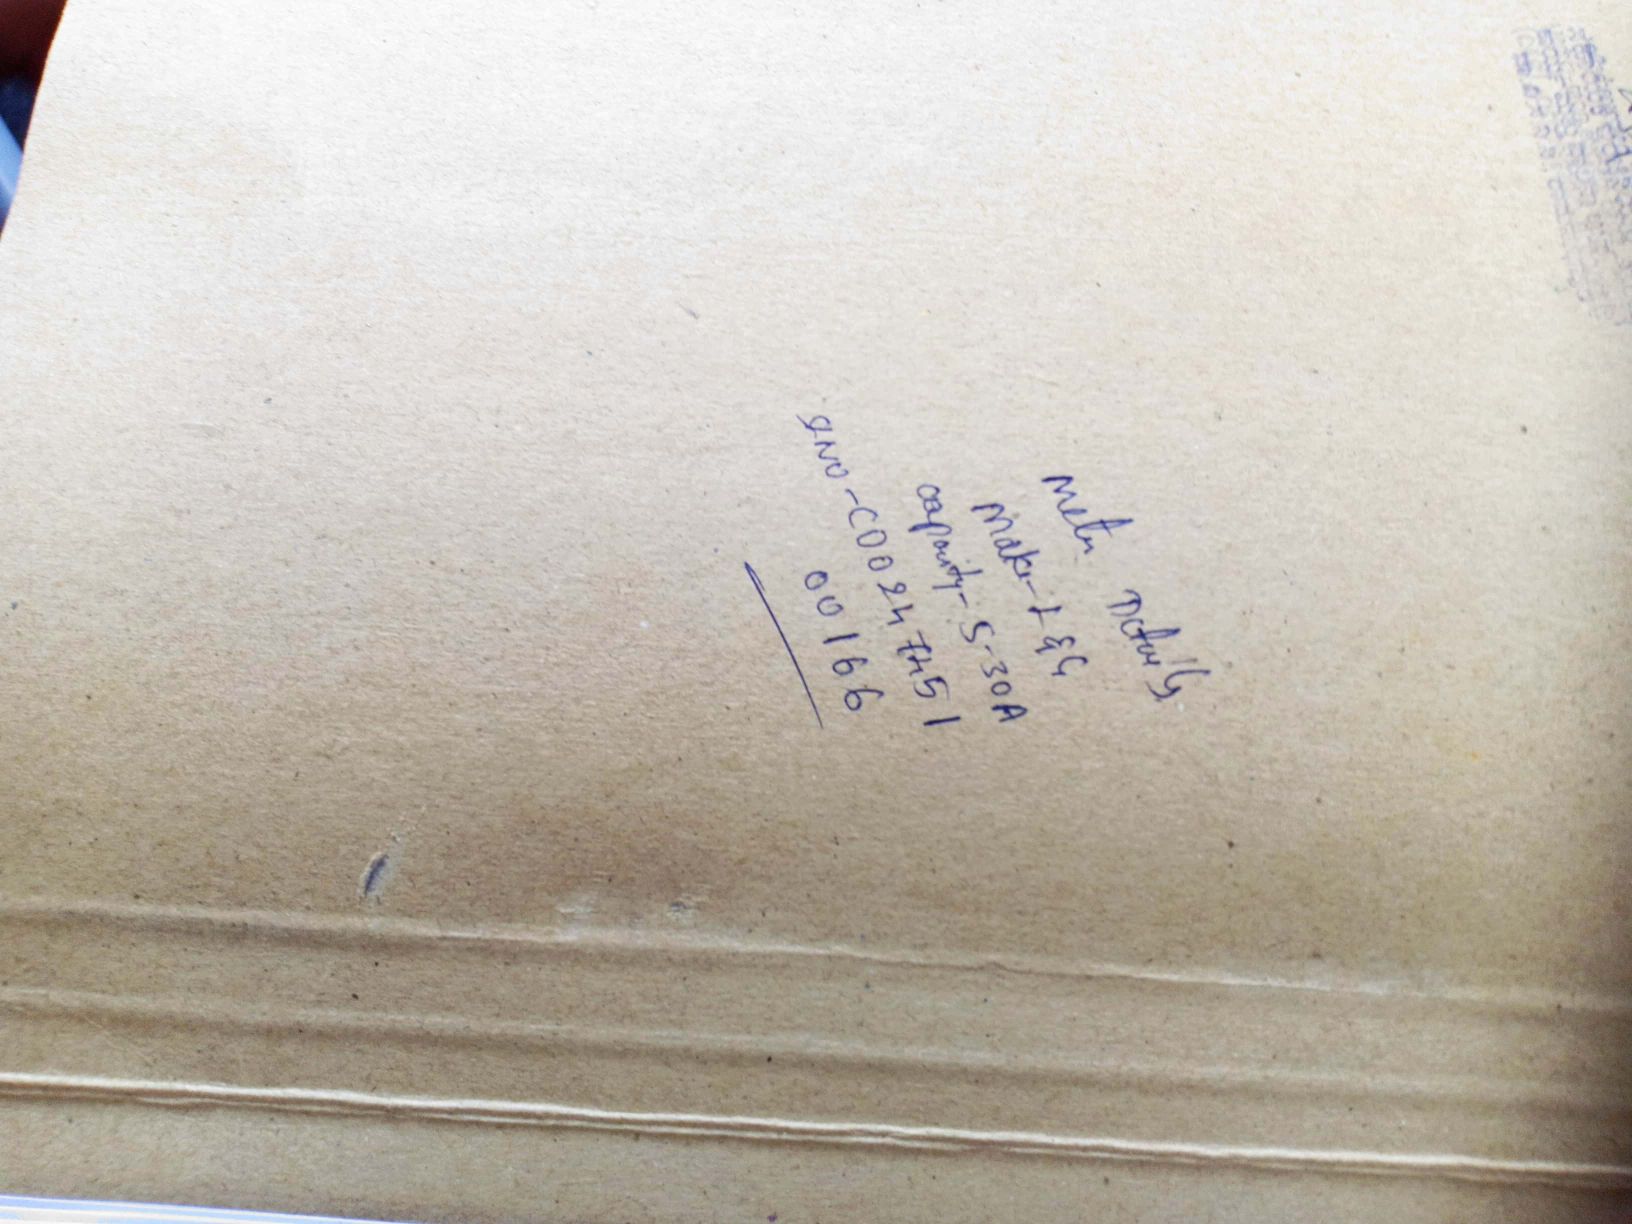 Meter Details
Make - L&G
capacity - 5-30A
SNO - C00247451
00166